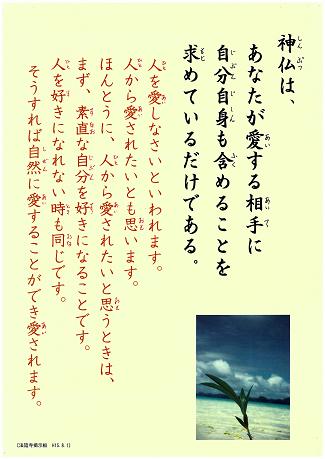 神仏は、
あなたが愛する相手に
自分自身も含めることを
求めているだけである。
人を愛しなさいといわれます。
人から愛されたいとも思います。
ほんとうに、人から愛されたいと思うときは、
まず、素直な自分を好きになることです。
人を好きになれない時も同じです。
そうすれば自然に愛することができ愛されます。